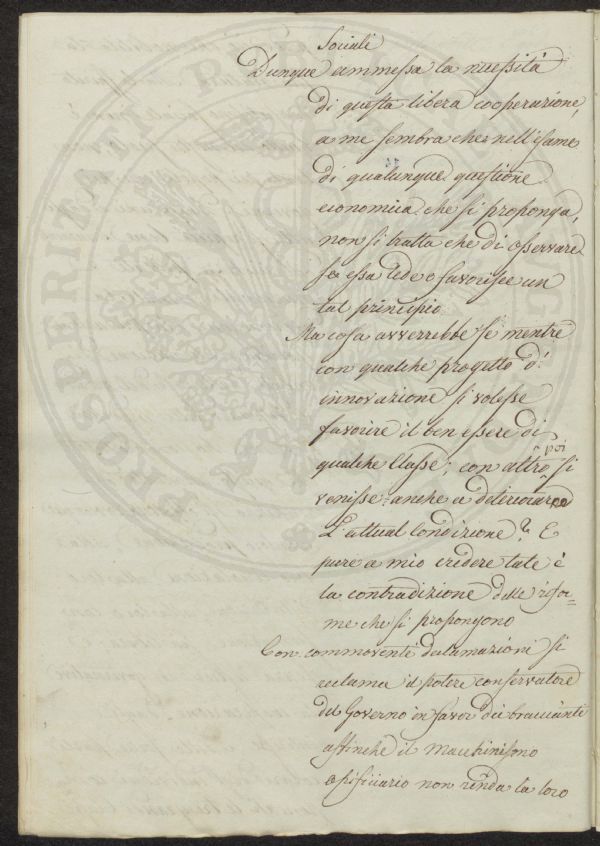 Sociali
Dunque ammessa la necessità
di questa libera cooperazione,
a me sembra che nell'isame
di qualunque questione
economica che si proponga,
non si tratta che di osservare
se essa lede o favorisce un
tal principio
Ma cosa avverrebbe se mentre
con qualche progetto d'
innovazione si volesse
favorire il ben essere di
qualche Classe; con altro poi si
venisse anche a deteriorarne
l'attual Condizione? E
pure a mio credere tale è
la contradizione delle rifor=
me che si propongono
Con commoventi declamazioni si
reclama il potere conservatore
del Governo in favor dei braccianti
affinchè il Macchinismo
opificiario non renda la loro
PROSPERITATI